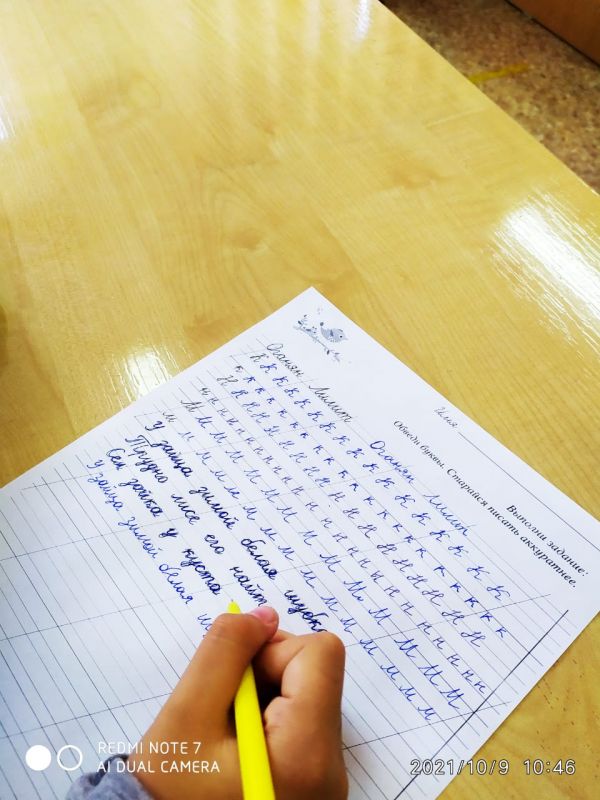 Выполни задание:
Обведи буквы. Старайся писать аккуратнее.
Имя
Оганян Лилит Оганян Лилит
К К К К К К К К К К К К К К К
к к к к к к к к к к к к к к к
Н Н Н Н Н Н Н Н Н Н Н Н Н Н Н
н н н н н н н н н н н н н н н н н н
М М М М М М М М М М М М М
м м м м м м м м м м м м м
У зайца зимой белая шубка
Трудно лисе его найт
Сел зайка у куста
У зайца зимой белая ш
REDMI NOTE 7
AI DUAL CAMERA
2021/10/9 10:46